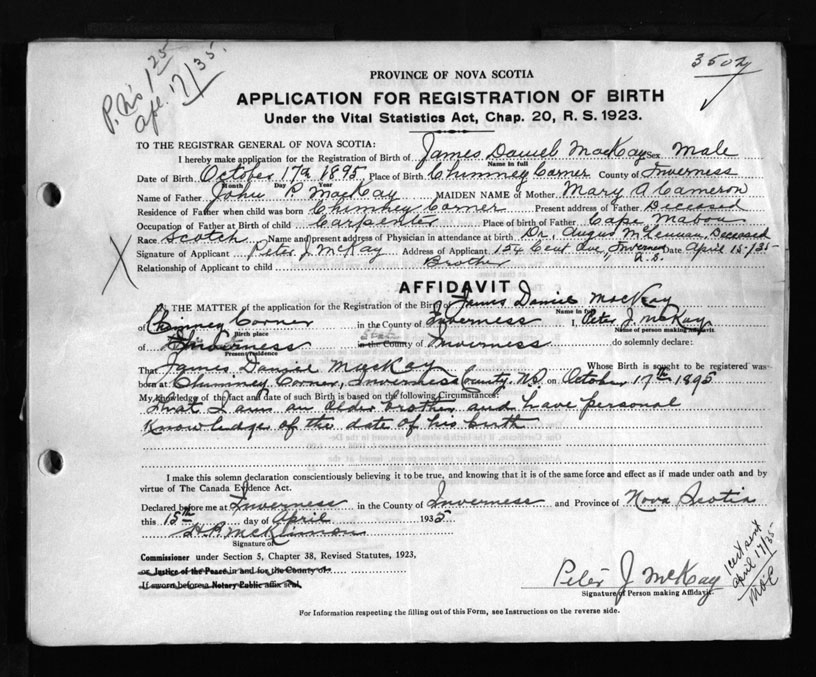 P. No 1.25
Apr. 17/35.
3502
PROVINCE OF NOVA SCOTIA
APPLICATION FOR REGISTRATION OF BIRTH
Under the Vital Statistics Act, Chap. 20, R. S. 1923.
TO THE REGISTRAR GENERAL OF NOVA SCOTIA:
I hereby make application for the Registration of Birth of James Daniel MacKay Sex Male
Name in full
Date of Birth October 17th 1895 Place of Birth Chimney Corner County of Inverness
Month Day Year
Name of Father John P. MacKay MAIDEN NAME of Mother Mary A Cameron
Residence of Father when child was born Chimney Corner Present address of Father Deceased
Occupation of Father at Birth of child Carpenter Place of birth of Father Cape Mabou
Race Scotch Name and present address of Physician in attendance at birth Dr. Angus McLennan, Deceased
Signature of Applicant Peter J. McKay Address of Applicant Cent Ave, Inverness Date April 15/35
N.S.
Relationship of Applicant to child Brother
AFFIDAVIT
IN THE MATTER of the application for the Registration of the Birth of James Daniel MacKay
Name in full
of Chimney Corner in the County of Inverness I, Peter J. McKay
Birth place Name of person making Affidavit
of Inverness in the County of Inverness do solemnly declare:
Present residence
That James Daniel MacKay Whose Birth is sought to be registered was
born at Chimney Corner, Inverness County, N.S. on October 17th 1895
My knowledge of the fact and date of such Birth is based on the following Circumstances:
that I am an older brother and have personal
knowledge of the date of his birth
I make this solemn declaration conscientiously believing it to be true, and knowing that it is of the same force and effect as if made under oath and by
virtue of The Canada Evidence Act.
Declared before me at Inverness in the County of Inverness and Province of Nova Scotia
this 15th day of April 1935
Signature of
Commissioner under Section 5, Chapter 38, Revised Statutes, 1923,
or Justice of the Peace in and for the County of
If sworn before a Notary Public affix seal,
Peter J. McKay
Signature of Person making Affidavit.
cert sent
April 17/35
For Information respecting the filling out of this Form, see Instructions on the reverse side.